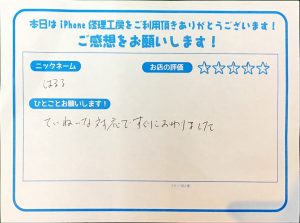 本日は iPhone 修理工房をご利用頂きありがとうございます!
ご感想をお願いします!
ニックネーム
はるる
お店の評価
☆☆☆☆☆
ひとことお願いします!
ていねいな対応ですぐにおわりました